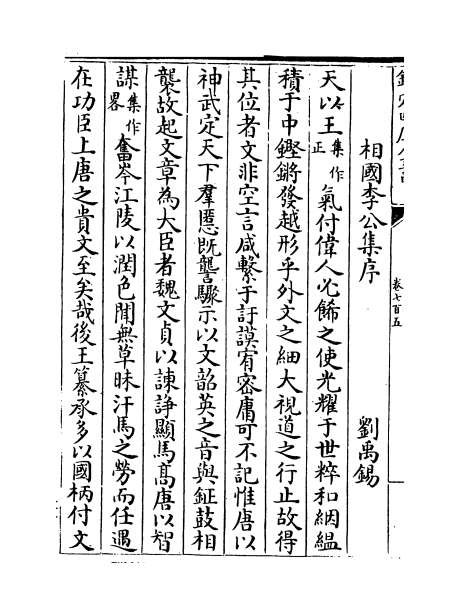 卷七百五
相國李公集序 劉禹錫
天以王集作正氣付偉人必餙之使光耀于世粹和絪緼
積于中鏗鏘發越形乎外文之細大視道之行止故得
其位者文非空言咸繫于訏謨宥密庸可不記惟唐以
神武定天下羣慝既讋驟示以文韶英之音與鉦鼓相
襲故起文章為大臣者魏文貞以諫諍顯馬髙唐以智
謀集作畧奮岑江陵以潤色聞無草昧汗馬之勞而任遇
在功臣上唐之貴文至矣哉後王纂承多以國柄付文